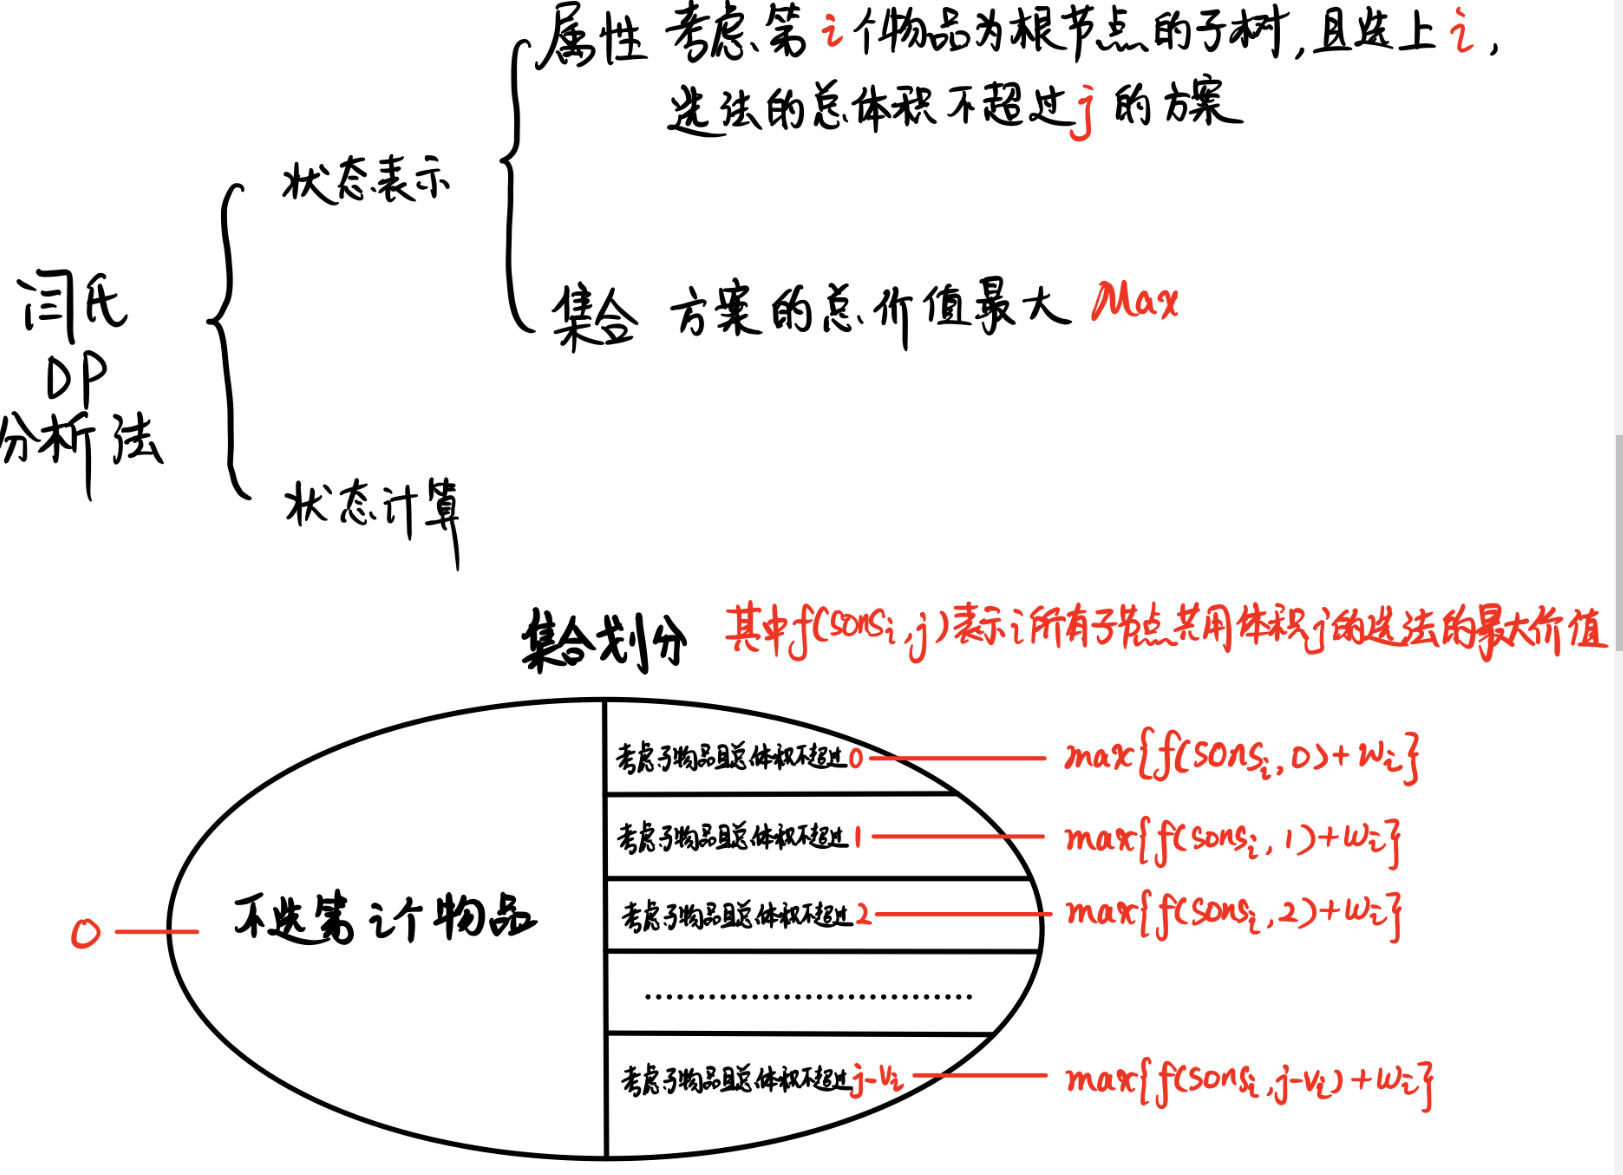 闫氏
DP
分析法
状态表示
属性 考虑第i个物品为根节点的子树,且选上i,
选法的总体积不超过j的方案
集合 方案的总价值最大 Max
状态计算
集合划分
其中f(sonsi,j)表示i所有子节点共用体积j的选法的最大价值
0
不选第i个物品
考虑子物品且总体积不超过0
max{f(sonsi,0)+wi}
考虑子物品且总体积不超过1
max{f(sonsi,1)+wi}
考虑子物品且总体积不超过2
max{f(sonsi,2)+wi}
..............................
考虑子物品且总体积不超过j-vi
max{f(sonsi,j-vi)+wi}